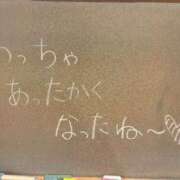 めっちゃ
あったかく
なったね〜